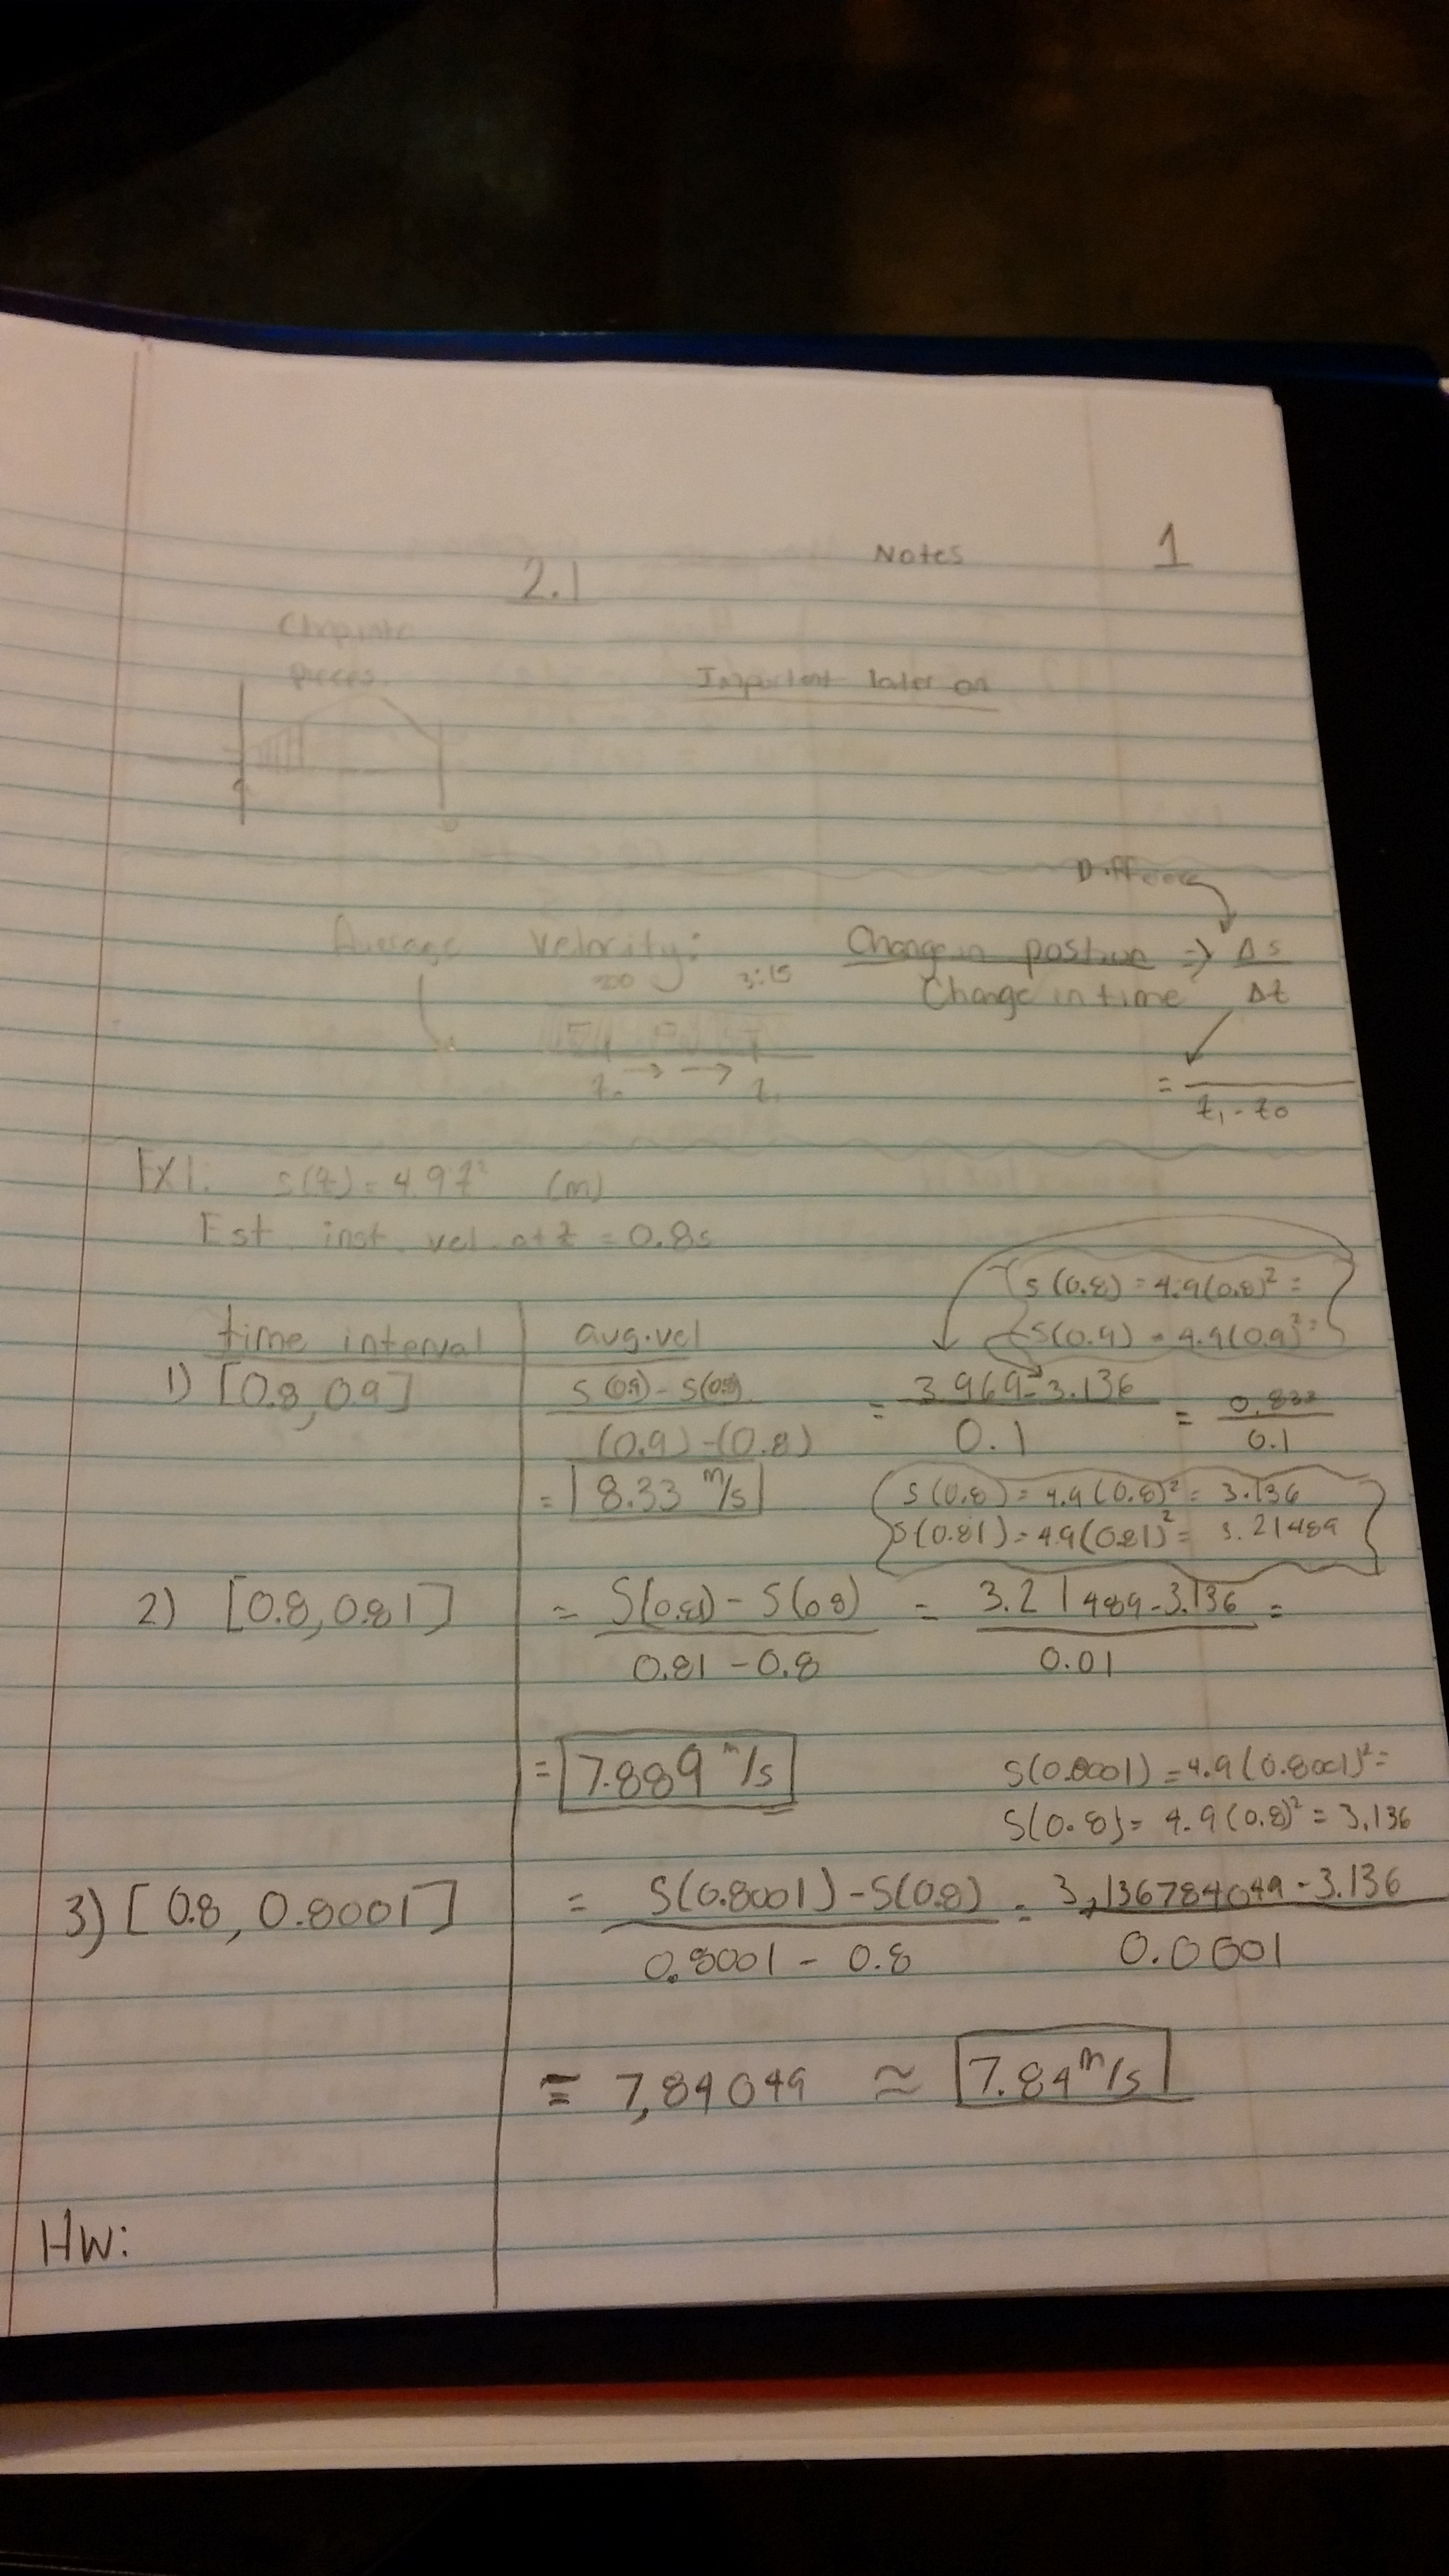 Notes 1
2.1
Chop into
pieces
Important later on
Difference
Average Velocity: Change in position => Δs
Change in time Δt
3:15
t₀ → → t₁
= ―――
t₁ - t₀
EX1. s(t) = 4.9t² (m)
Est. inst. vel. at t = 0.8s
s(0.8) = 4.9(0.8)² =
time interval avg. vel s(0.9) = 4.9(0.9)² =
1) [0.8, 0.9] s(0.9) - s(0.8) = 3.969 - 3.136 = 0.833
(0.9) - (0.8) 0.1 0.1
= 8.33 m/s s(0.8) = 4.9(0.8)² = 3.136
s(0.81) = 4.9(0.81)² = 3.21489
2) [0.8, 0.81] = S(0.81) - S(0.8) = 3.21489 - 3.136 =
0.81 - 0.8 0.01
= 7.889 m/s S(0.8001) = 4.9(0.8001)² =
S(0.8) = 4.9(0.8)² = 3.136
3) [0.8, 0.8001] = S(0.8001) - S(0.8) = 3,136784049 - 3.136
0.8001 - 0.8 0.0001
= 7,84049 ≈ 7.84 m/s
HW: